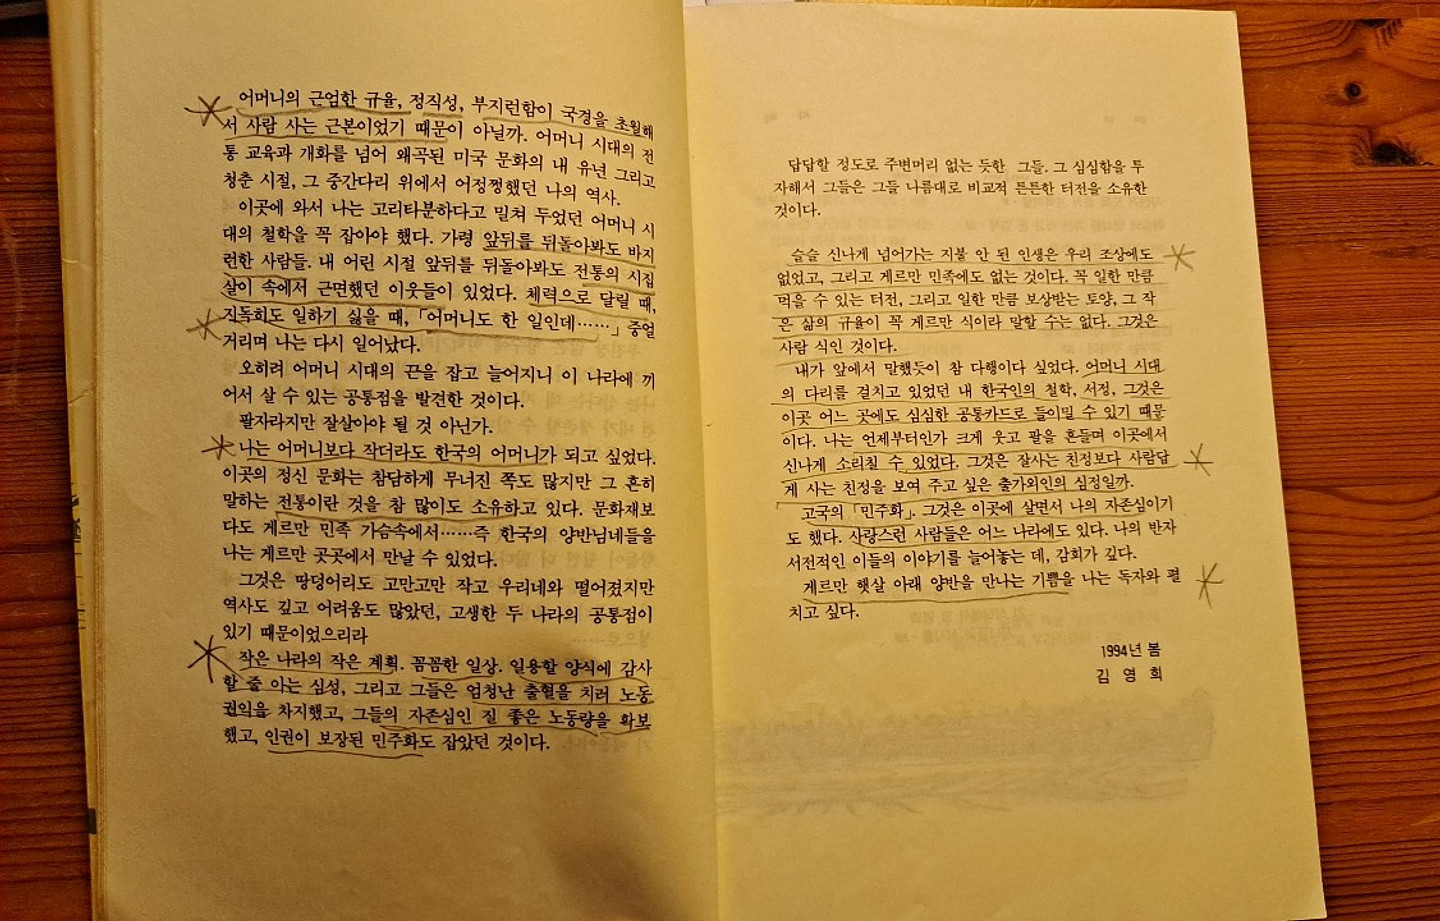 어머니의 근엄한 규율, 정직성, 부지런함이 국경을 초월해
서 사람 사는 근본이었기 때문이 아닐까. 어머니 시대의 전
통 교육과 개화를 넘어 왜곡된 미국 문화의 내 유년 그리고
청춘 시절, 그 중간다리 위에서 어정쩡했던 나의 역사.
이곳에 와서 나는 고리타분하다고 밀쳐 두었던 어머니 시
대의 철학을 꼭 잡아야 했다. 가령 앞뒤를 뒤돌아봐도 바지
런한 사람들. 내 어린 시절 앞뒤를 뒤돌아봐도 전통의 시집
살이 속에서 근면했던 이웃들이 있었다. 체력으로 달릴 때,
지독히도 일하기 싫을 때, 「어머니도 한 일인데……」 중얼
거리며 나는 다시 일어났다.
오히려 어머니 시대의 끈을 잡고 늘어지니 이 나라에 끼
어서 살 수 있는 공통점을 발견한 것이다.
팔자라지만 잘살아야 될 것 아닌가.
나는 어머니보다 작더라도 한국의 어머니가 되고 싶었다.
이곳의 정신 문화는 참담하게 무너진 쪽도 많지만 그 흔히
말하는 전통이란 것을 참 많이도 소유하고 있다. 문화재보
다도 게르만 민족 가슴속에서……즉 한국의 양반님네들을
나는 게르만 곳곳에서 만날 수 있었다.
그것은 땅덩어리도 고만고만 작고 우리네와 떨어졌지만
역사도 깊고 어려움도 많았던, 고생한 두 나라의 공통점이
있기 때문이었으리라
작은 나라의 작은 계획. 꼼꼼한 일상. 일용할 양식에 감사
할 줄 아는 심성, 그리고 그들은 엄청난 출혈을 치러 노동
권익을 차지했고, 그들의 자존심인 질 좋은 노동량을 확보
했고, 인권이 보장된 민주화도 잡았던 것이다.
답답할 정도로 주변머리 없는 듯한 그들. 그 심심함을 투
자해서 그들은 그들 나름대로 비교적 튼튼한 터전을 소유한
것이다.
슬슬 신나게 넘어가는 지불 안 된 인생은 우리 조상에도
없었고, 그리고 게르만 민족에도 없는 것이다. 꼭 일한 만큼
먹을 수 있는 터전, 그리고 일한 만큼 보상받는 토양, 그 작
은 삶의 규율이 꼭 게르만 식이라 말할 수는 없다. 그것은
사람 식인 것이다.
내가 앞에서 말했듯이 참 다행이다 싶었다. 어머니 시대
의 다리를 걸치고 있었던 내 한국인의 철학, 서정, 그것은
이곳 어느 곳에도 심심한 공통카드로 들이밀 수 있기 때문
이다. 나는 언제부터인가 크게 웃고 팔을 흔들며 이곳에서
신나게 소리칠 수 있었다. 그것은 잘사는 친정보다 사람답
게 사는 친정을 보여 주고 싶은 출가외인의 심정일까.
고국의 「민주화」. 그것은 이곳에 살면서 나의 자존심이기
도 했다. 사랑스런 사람들은 어느 나라에도 있다. 나의 반자
서전적인 이들의 이야기를 늘어놓는 데, 감회가 깊다.
게르만 햇살 아래 양반을 만나는 기쁨을 나는 독자와 펼
치고 싶다.
1994년 봄
김 영 희